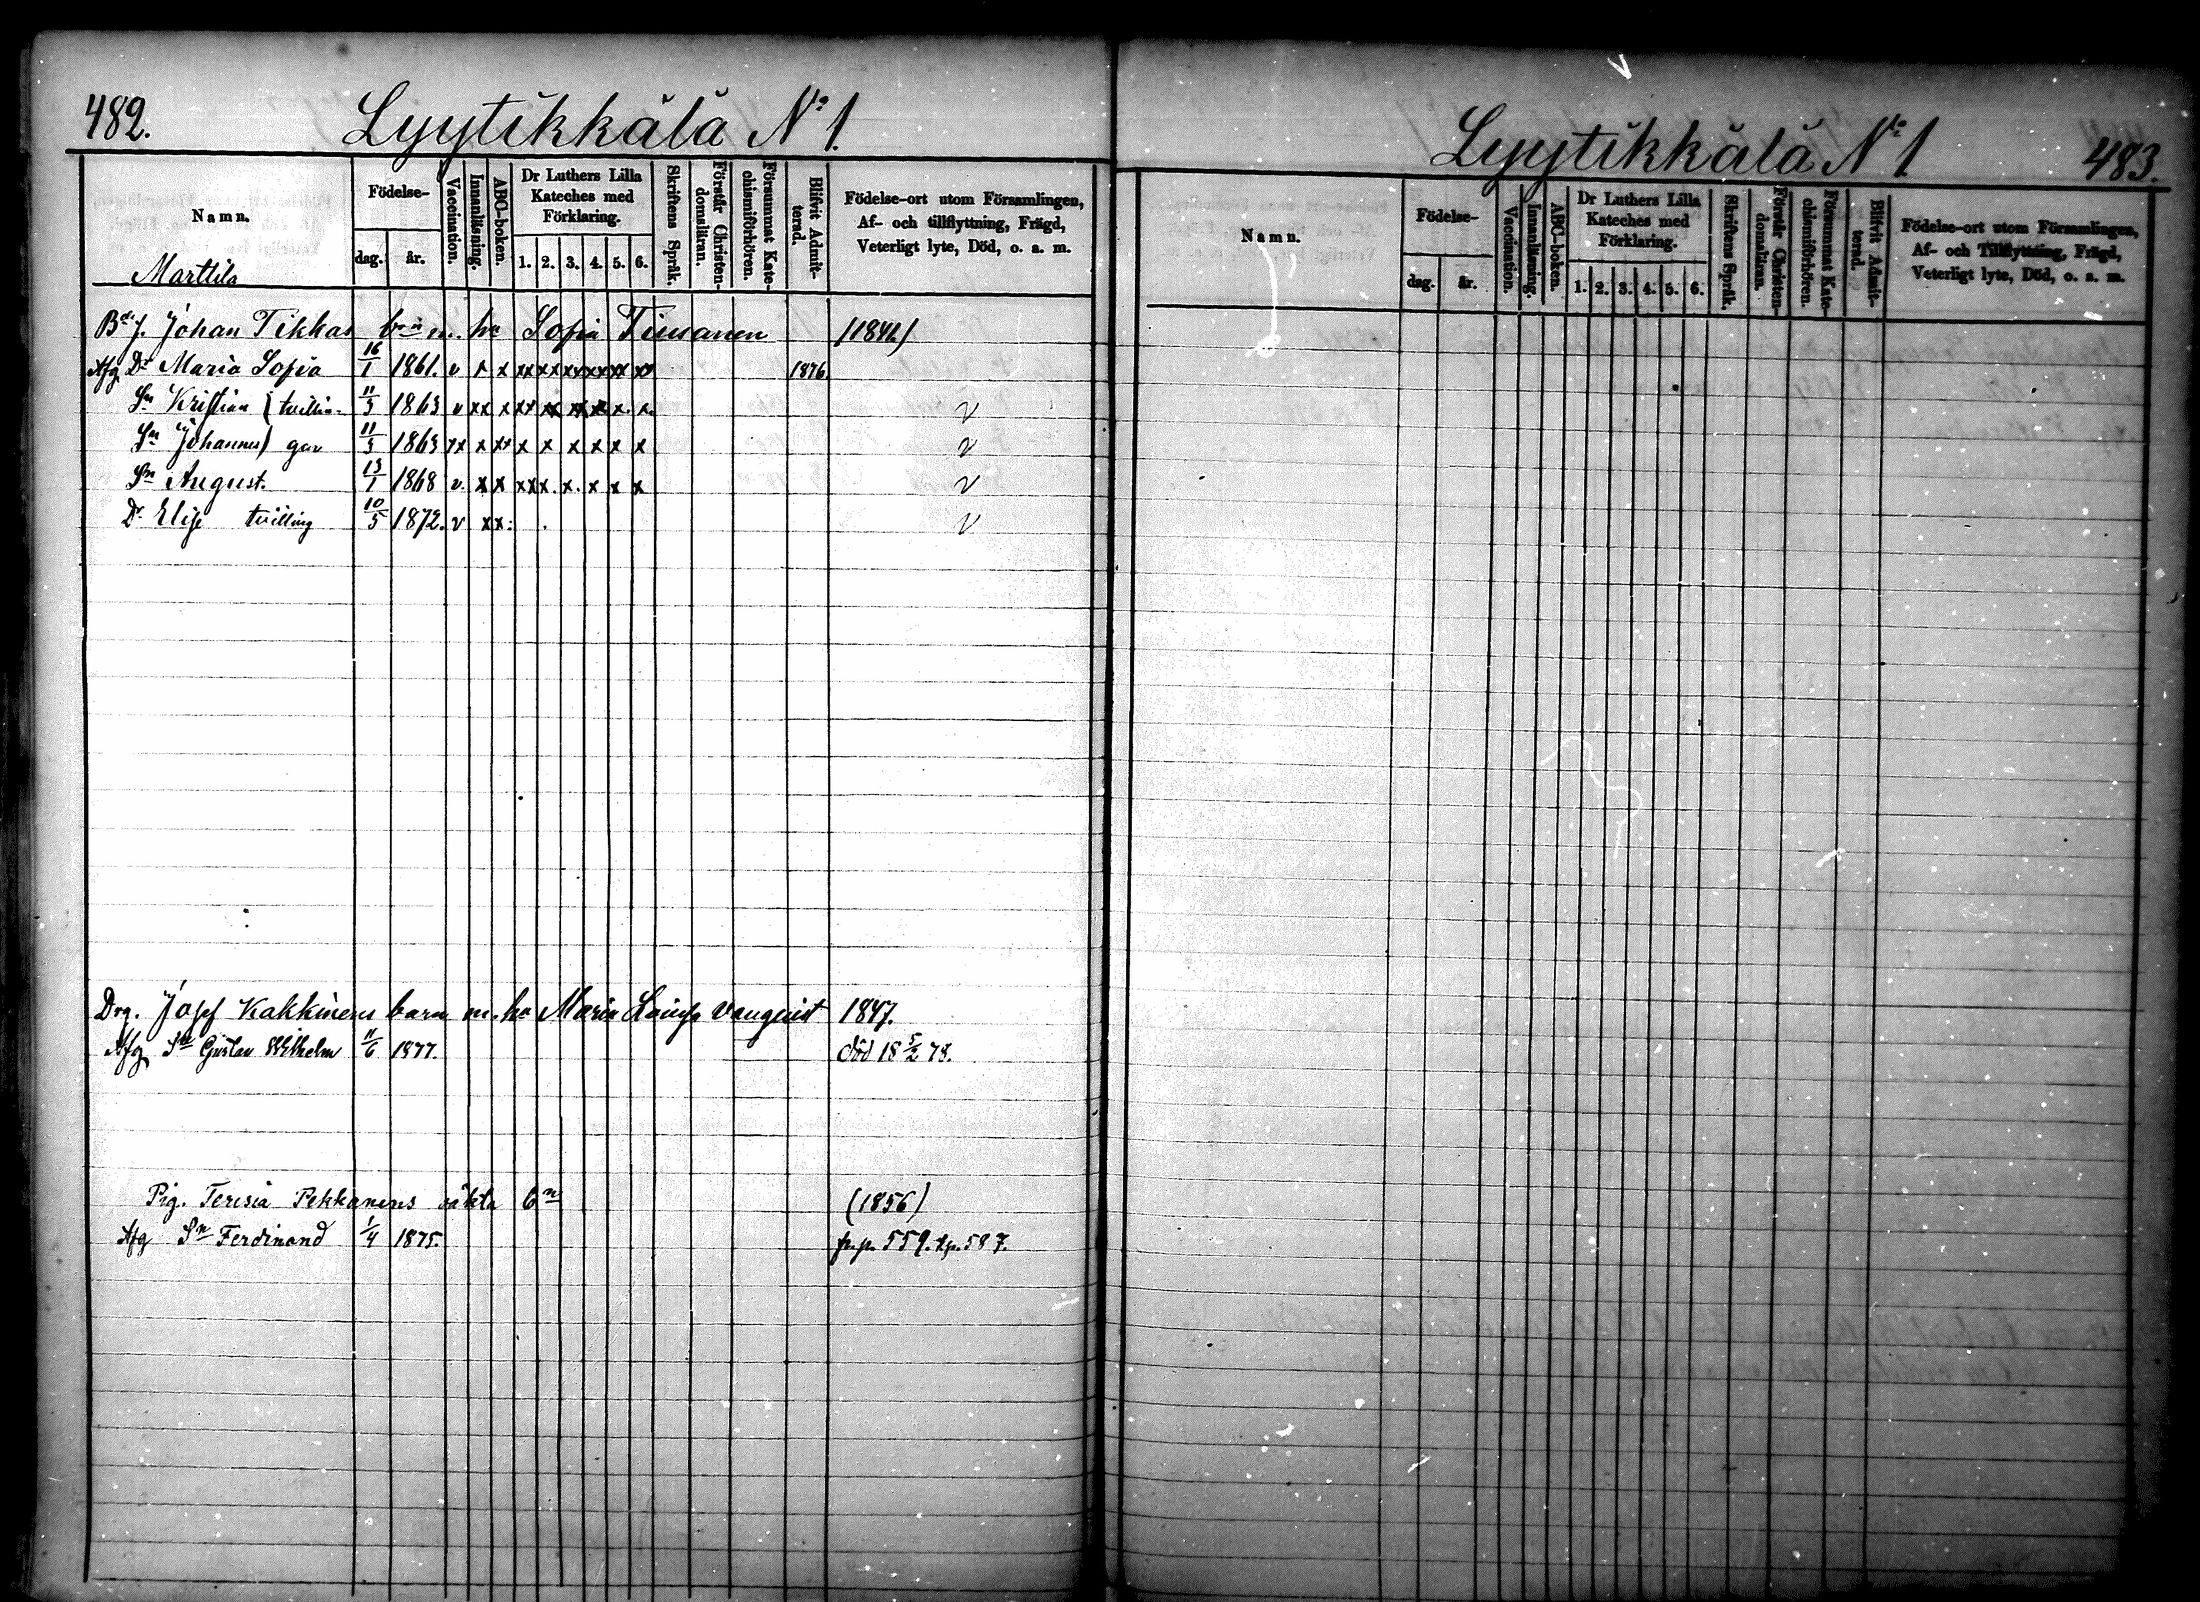 482.
Lyytikkälä No 1.
Namn.
Födelse-
dag.
år.
Vaccination.
Innanläsning.
ABC-boken.
Dr Luthers Lilla
Kateches med
Förklaring.
1. 2. 3. 4. 5. 6.
Skriftens Språk.
Förstår Christen-
domsläran.
Försummat Kate-
chismiförhören.
Blifvit Admit-
terad.
Födelse-ort utom Församlingen,
Af- och tillflyttning, Frägd,
Veterligt lyte, Död, o. a. m.
Marttila
Johan Tikkas bn m. hu Sofia
Afg Dr Maria Sofia 16/1 1861. v x x xx xx xx xx xx 1876.
Sn Kristian (tvillin- 11/3 1863 v xx x x. x. v
Sn Johannes) gar 11/3 1863 x x x x x x x v
Sn August. 13/1 1868 v. x x xxx. x. x x x v
Dr Elise tvilling 10/5 1872. v xx. v
Drg. Josef Kakkinens barn m. hu Maria Lovisa 1847.
Afg Sn Gustav Wilhelm 11/6 1877. död 18 5/2 78.
Pig. Teresia Pekkanens oäkta bn (1856)
Afg Sn Ferdinand 1/4 1875. fr.p. 559. t.p. 587.
Lyytikkälä No 1
483.
Namn.
Födelse-
dag.
år.
Vaccination.
Innanläsning.
ABC-boken.
Dr Luthers Lilla
Kateches med
Förklaring.
1. 2. 3. 4. 5. 6.
Skriftens Språk.
Förstår Christen-
domsläran.
Försummat Kate-
chismiförhören.
Blifvit Admit-
terad.
Födelse-ort utom Församlingen,
Af- och Tillflyttning, Frägd,
Veterligt lyte, Död, o. a. m.